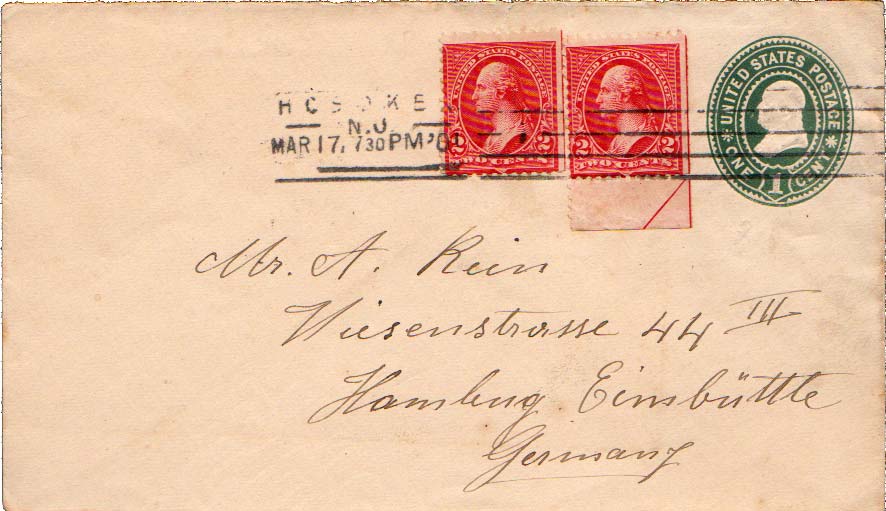 UNITED STATES POSTAGE
2 2
TWO CENTS
UNITED STATES POSTAGE
2 2
TWO CENTS
UNITED STATES POSTAGE
ONE 1 CENT
HOBOKEN
N.J.
MAR 17, 730 PM '01
Mr. A. Rein
Wiesenstrasse 44 III
Hamburg Eimsbüttle
Germany